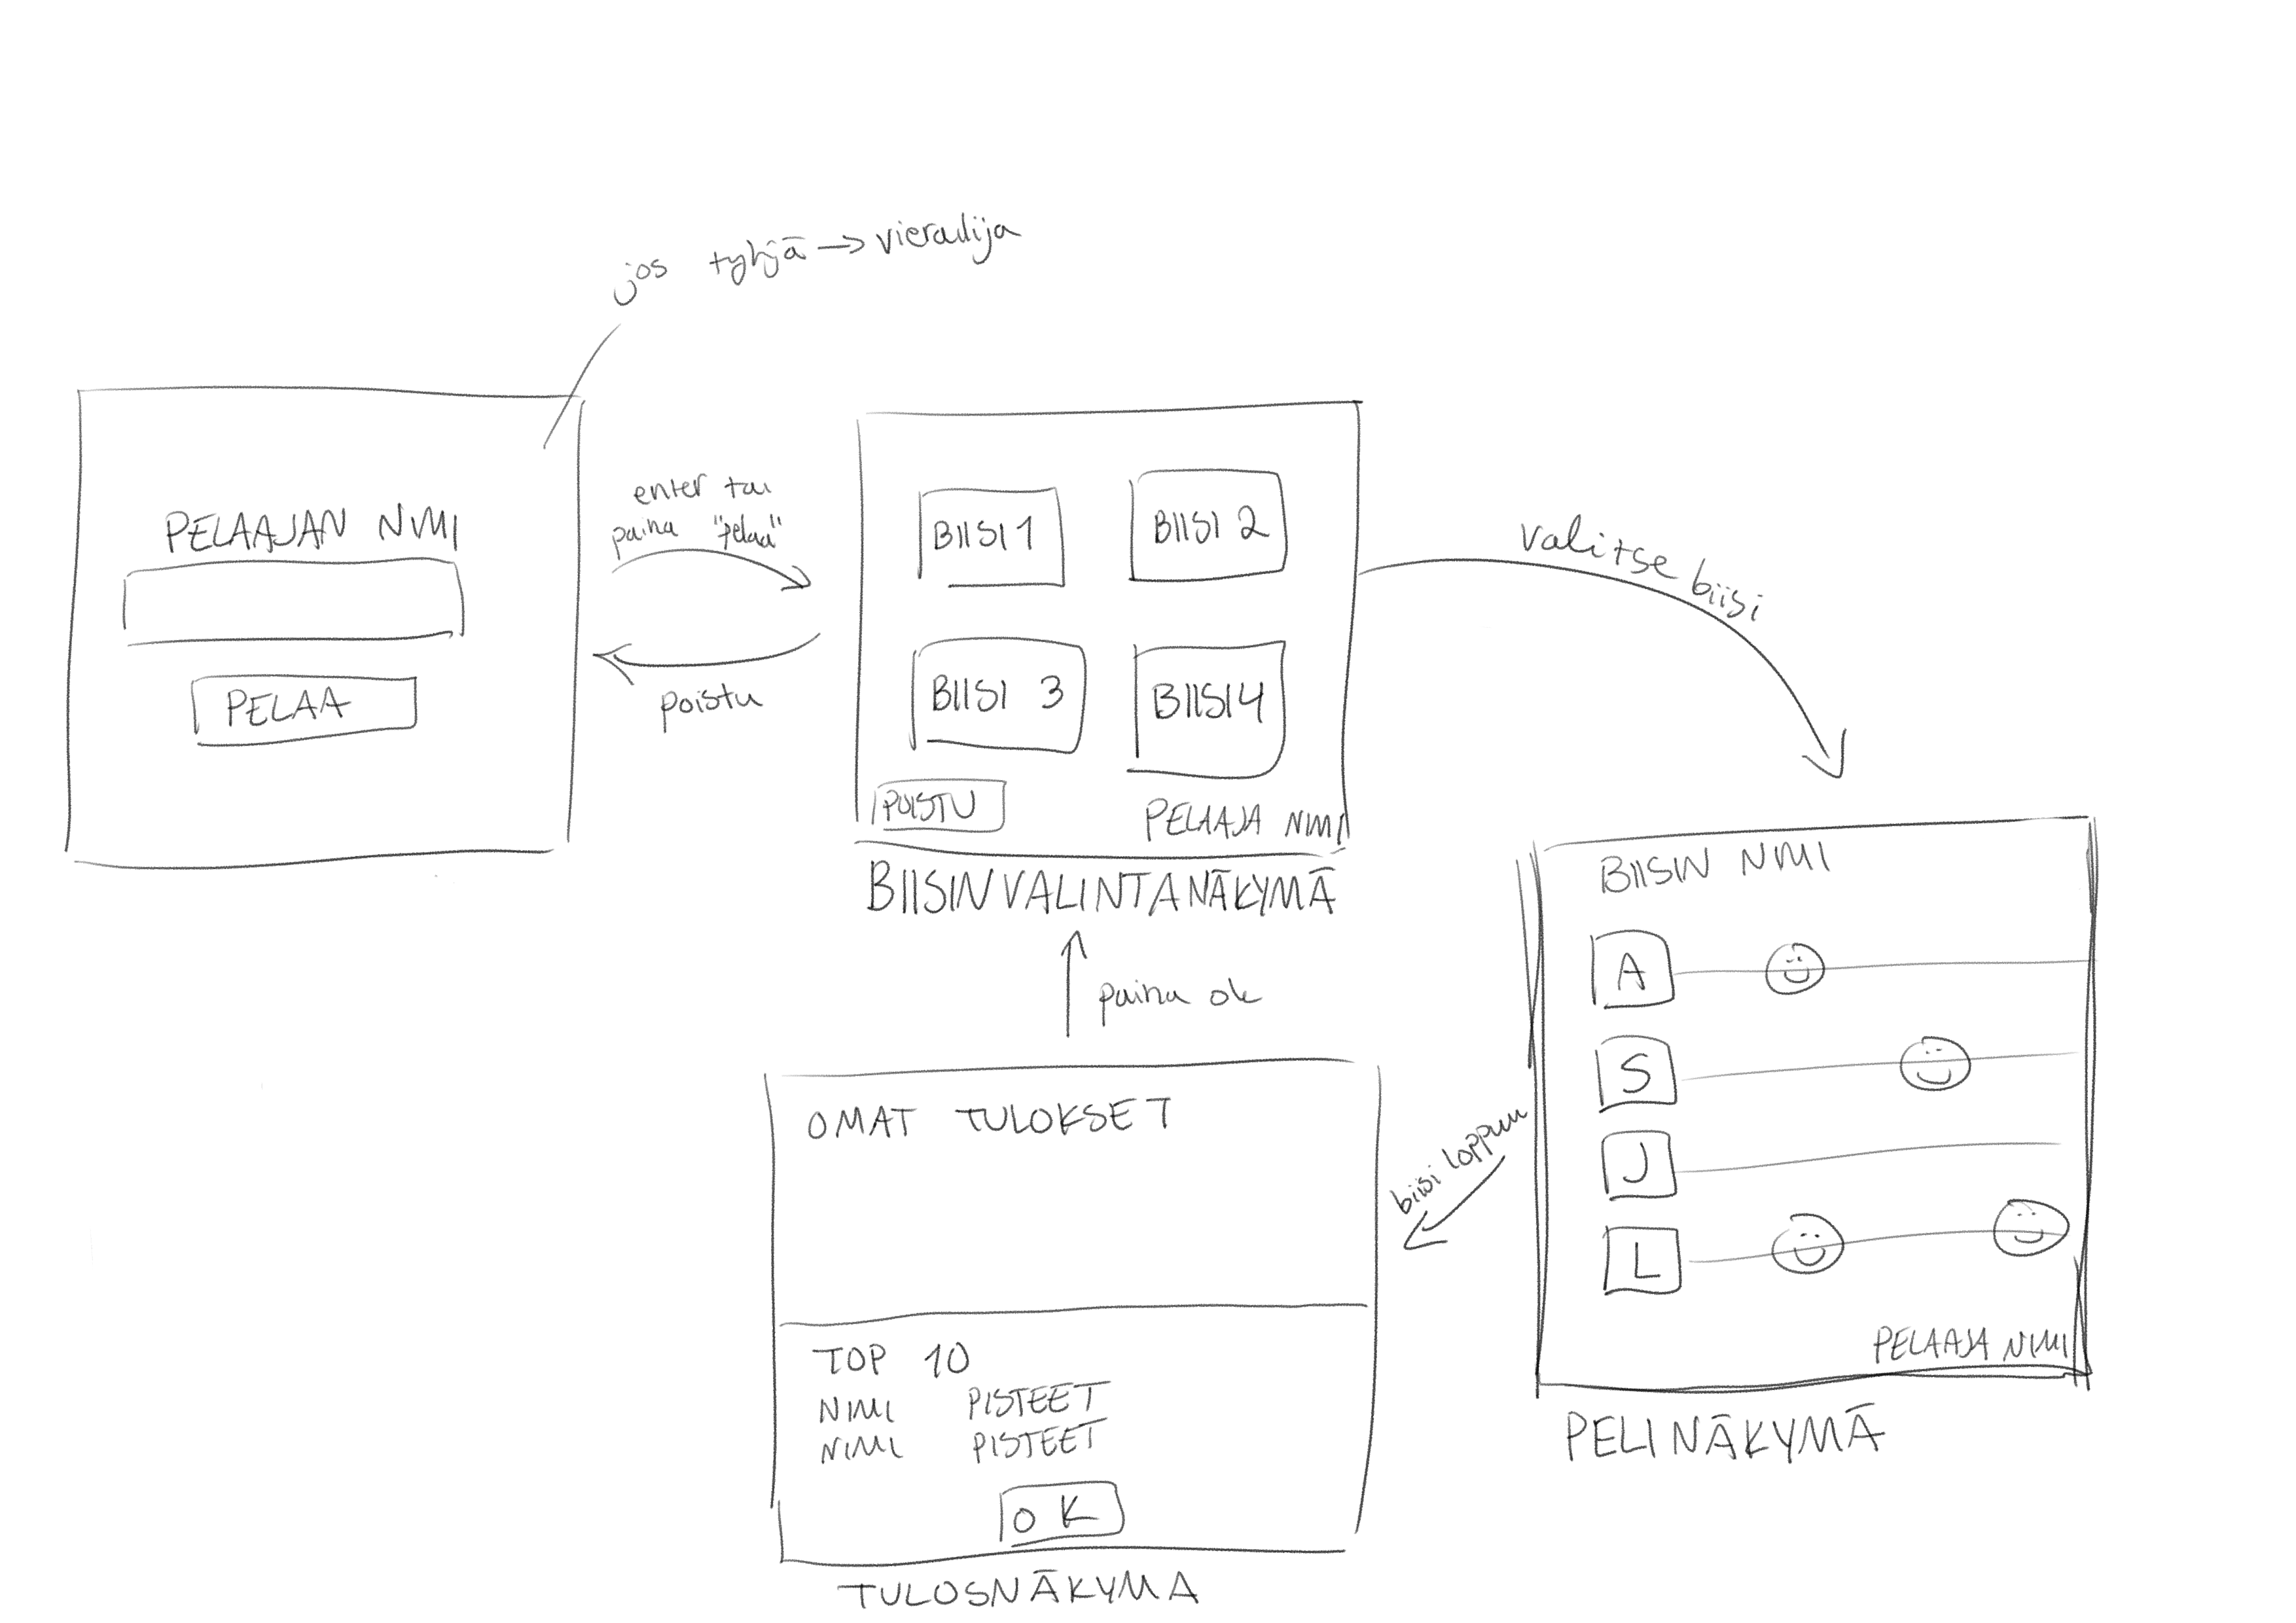 jos tyhjä → vierailija
PELAAJAN NIMI
PELAA
enter tai
paina "pelaa"
poistu
BIISI 1
BIISI 2
BIISI 3
BIISI 4
POISTU
PELAAJA NIMI
BIISINVALINTANÄKYMÄ
valitse biisi
BIISIN NIMI
A
S
J
L
PELAAJA NIMI
PELINÄKYMÄ
biisi loppuu
paina ok
OMAT TULOKSET
TOP 10
NIMI PISTEET
NIMI PISTEET
OK
TULOSNÄKYMA